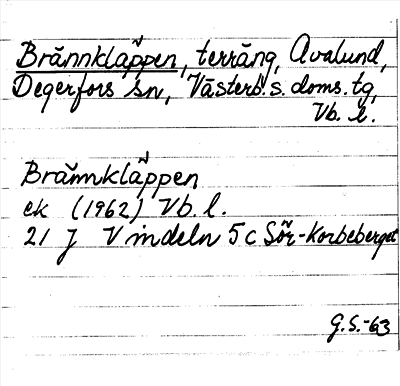 Brännkläppen, terräng, Avalund,
Degerfors sn, Västerb.s. doms. tg,
Vb. l.
Brännkläppen
ek (1962) Vb. l.
21 J Vindeln 5c Sör-Korbeberget
G.S.-63